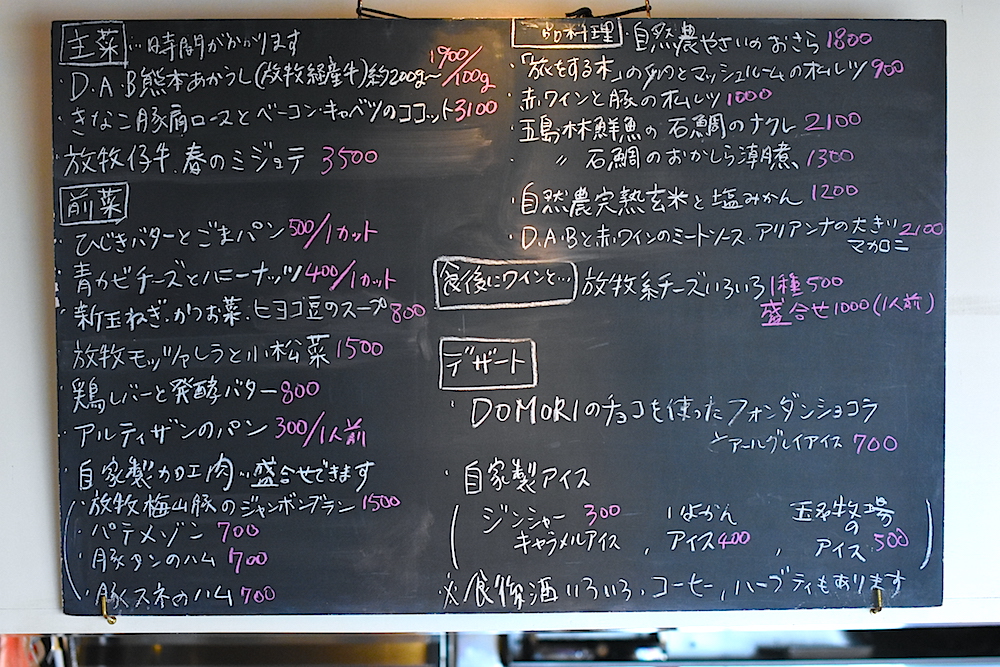 主菜 …時間がかかります
・D.A.B熊本あかうし(放牧経産牛)約200g〜1900/100g
・きなこ豚肩ロースとベーコン・キャベツのココット3100
・放牧仔牛.春のミジョテ 3500
前菜
・ひじきバターとごまパン500/1カット
・青カビチーズとハニーナッツ400/1カット
・新玉ねぎ.かつお菜.ヒヨコ豆のスープ800
・放牧モッツァしうと小松菜1500
・鶏レバーと発酵バター800
・アルティザンのパン300/1人前
・自家製加工肉…盛合せできます
・放牧梅山豚のジャンボンブラン1500
パテメゾン700
・豚タンのハム700
・豚スネのハム700
一品料理
・自然農やさいのおさら1800
・「旅をする木」の卵とマッシュルームのオムレツ900
・赤ワインと豚のオムレツ1000
・五島林鮮魚の石鯛のナクレ2100
・〃 石鯛のおかしら潮煮1300
・自然農完熟玄米と塩みかん1200
・D.A.Bと赤ワインのミートソース.アリアンナの大きい2100
マカロニ
食後にワインと…
放牧系チーズいろいろ1種500
盛合せ1000(1人前)
デザート
・DOMORIのチョコを使ったフォンダンショコラ
とアールグレイアイス700
・自家製アイス
(ジンジャー 300
キャラメルアイス
, いよかん
アイス400
, 玉名牧場
の
アイス500)
※食後酒いろいろ,コーヒー,ハーブティもあります